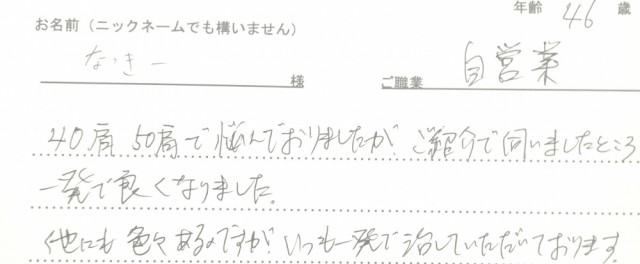 年齢 46 歳
お名前（ニックネームでも構いません）
なっきー 様 ご職業 自営業
40肩 50肩で悩んでおりましたが、ご紹介で伺いましたところ
一発で良くなりました。
他にも色々あるのですが、いつも一発で治していただいております。